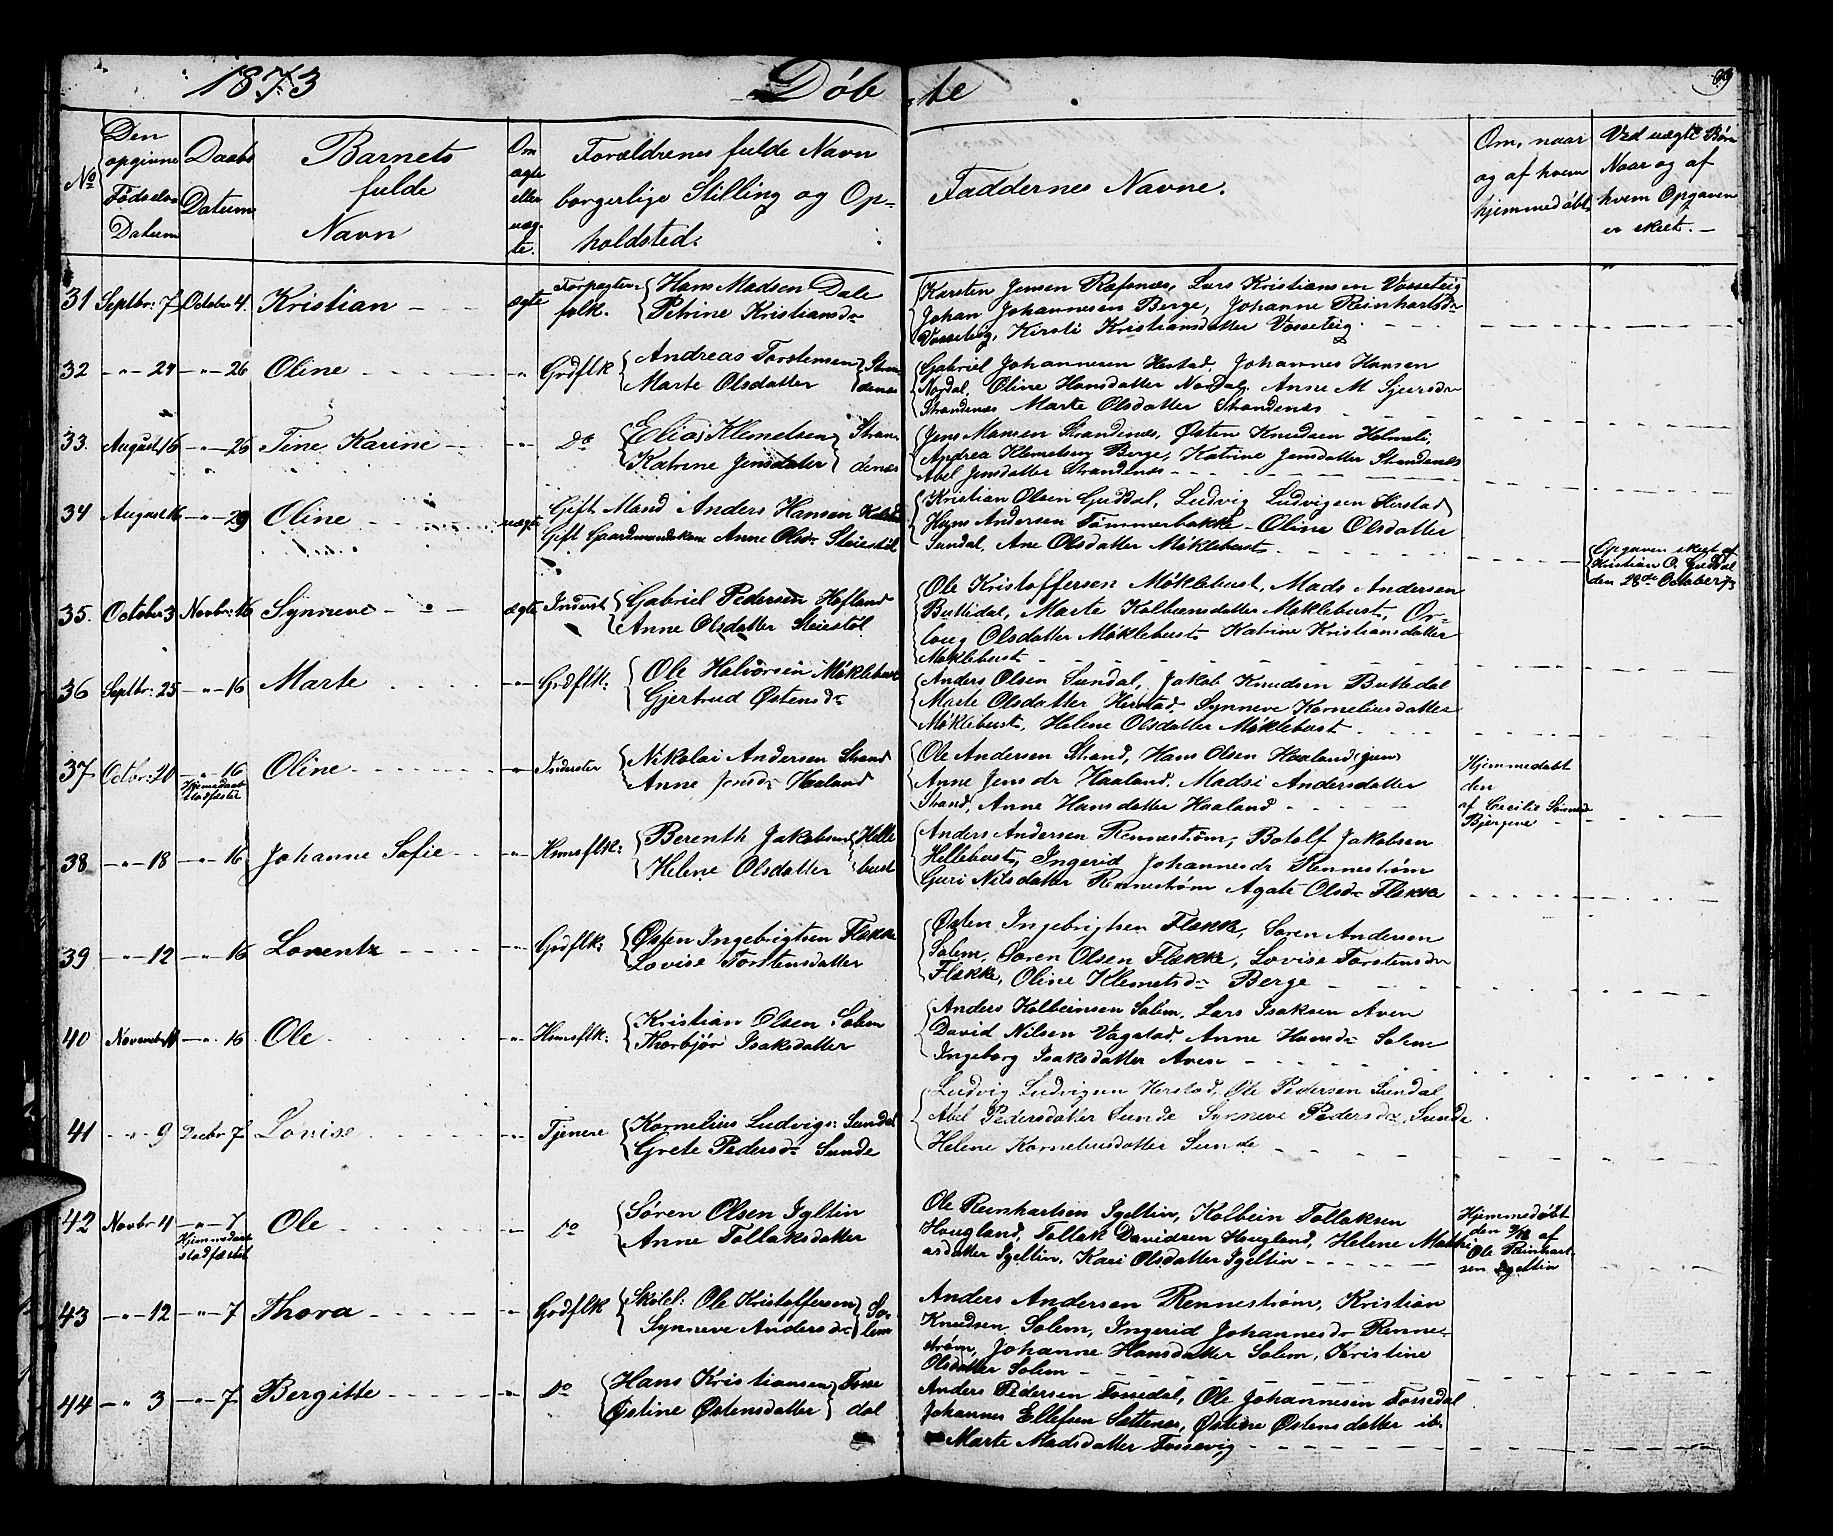 1873 Døbte 99
No
Den opgivne Fødsels Datum
Daabs Datum
Barnets fulde Navn
Om ægte eller uægte.
Forældrenes fulde Navn borgerlige Stilling og Opholdsted.
Faddernes Navne.
Om, naar og af hvem hjemmedøbt
Ved uægte Børn Naar og af hvem Opgaven er skeet.
31 Septbr: 7 Octobr 4. Kristian ægte Forpagterfolk. Hans Madsen Dale
Petrine Kristiansdr
Karsten Jensen Rafsnæs, Lars Kristiansen Vosseteig
Johan Johannesen Berge, Johanne Reinhartsdr
Vosseteig, Kirsti Kristiansdatter Vosseteig.
32 -"- 24 -"- 26 Oline " Grdflk Andreas Torstensen Strandenæs
Marte Olsdatter
Gabriel Johannesen Herstad, Johannes Hansen
Nordal, Oline Hansdatter Nordal, Anne M Sjursdr
Strandenæs Marte Olsdatter Strandenæs
33. August 16 -"- 26 Tine Karine " Do Elias Klemetsen Strandenæs
Katrine Jensdatter
Jens Monsen Strandenæs, Østen Knudsen Holmeli,
Andrea Klemetsen Berge, Katrine Jensdatter Strandenæs
Abel Jensdatter Strandenæs
34 August 16 -"- 29 Oline uægte Gift Mand Anders Hansen
Gift Gaardmandskone Anne Olsdr Steiestøl
Kristian Olsen Guddal, Ludvig Ludvigsen Herstad
Hans Andersen Tømmerbakke Oline Olsdatter
Sundal, Ane Olsdatter Møklebust
Opgaven skeet af
Kristian O. Guddal
den 28de October 73
35. October 3 Novbr: 16 Synneve ægte Inderst Gabriel Pedersen Hofland
Anne Olsdatter Steiestøl
Ole Kristoffersen Møklebust, Mads Andersen
Buttedal, Marte Kolbeensdatter Møklebust, Or-
laug Olsdatter Møklebust Katrine Kristiansdatter
Møklebust
36 Septbr: 25 -"- 16 Marte " Grdflk: Ole Halvorsen Møklebust
Gjertrud Østensdr
Anders Olsen Sundal, Jakob Knudsen Buttedal
Marte Olsdatter Herstad, Synneve Korneliusdatter
Møklebust, Helene Olsdatter Møklebust
37 Octobr: 20 -"- 16 Hjemedaab stadfæstet Oline " Inderster Nikolai Andersen Strand
Anne Jensdr Haaland
Ole Andersen Strand, Hans Olsen Haaland
Anne Jensdr Haaland, Madsi Andersdatter
Strand, Anne Hansdatter Haaland
Hjemmedøbt
den
af Cecilie
38 -"- 18 -"- 16 Johanne Sofie " Hmsflk: Berenth Jakobsen Hellebust
Helene Olsdatter
Anders Andersen Rennestrøm, Botolf Jakobsen
Hellebust, Ingerid Johannesdr Rennestrøm
Guri Nilsdatter Rennestrøm Agate Olsdr Flekke
39 -"- 12 -"- 16 Lorentz " Grdflk: Østen Ingebrigtsen Flekke
Lovise Torstensdatter
Østen Ingebrigtsen Flekke, Søren Andersen
Solem, Søren Olsen Flekke, Lovise Torstensdr
Flekke, Oline Klemetsdr Berge
40 Novembr -"- 16 Ole " Hmsflk: Kristian Olsen Solem
Thorbjør Isaksdatter
Anders Kolbeinsen Solem, Lars Isaksen Aven
David Nilsen Vagstad, Anne Hansdr Solem
Ingeborg Isaksdatter Aven
41 -"- 9 Decbr 7 Lovise " Tjenere Kornelius Ludvigs: Sundal
Grete Pedersdr Sunde
Ludvig Ludvigsen Herstad, Ole Pedersen Sundal
Abel Pedersdatter Sunde Synneve Pedersdr Sunde
Helene Korneliusdatter Sunde
42 Novbr 4 -"- 7 Hjemmedaab stadfæstet Ole " Do Søren Olsen Igeltin
Anne Tollaksdatter
Ole Reinhartsen Igeltin, Kolbein Tollaksen
Hougland, Tollak Davidsen Hougland, Helene Mathi-
asdatter Igeltin, Kari Olsdatter Igeltin
Hjemmedøbt
den af
Ole Reinhart-
sen Igeltin
43 -"- 12 -"- 7 Thora " Grdflk Skoleh: Ole Kristoffersen Solem
Synneve Andersdr
Anders Andersen Rennestrøm, Kristian
Knudsen Solem, Ingerid Johannesdr Renne-
strøm, Johanne Hansdatter Solem, Kristine
Olsdatter Solem
44 -"- 3 -"- 7 Bergitte " Do Hans Kristiansen Fossedal
Østine Østensdatter
Anders Pedersen Fossedal, Ole Johannesen Fossedal
Johannes Ellefsen Sættenæs, Østine Østensdatter ib:
Marte Madsdatter Fossevig